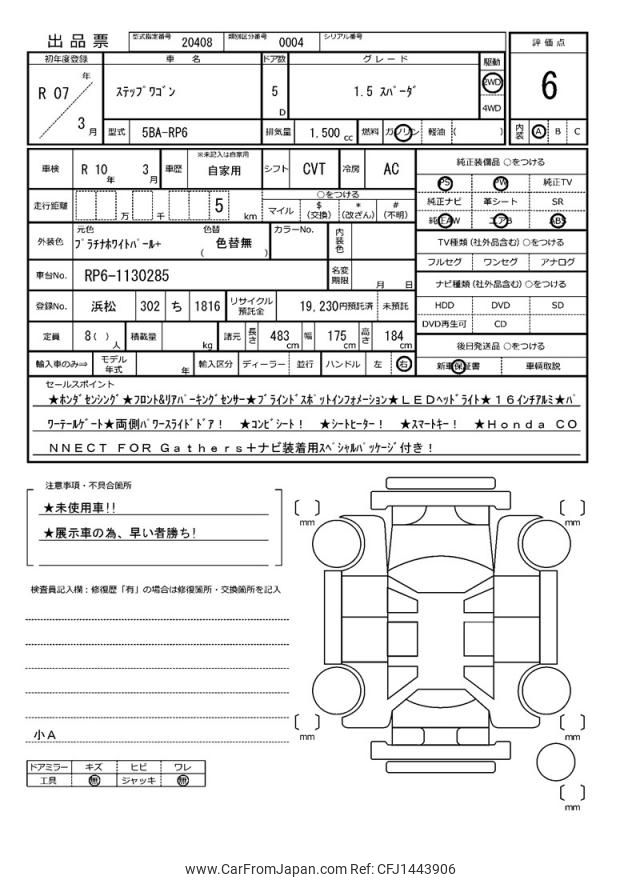 出品票 型式指定番号 20408 類別区分番号 0004 シリアル番号
評価点
6
内装 A B C
初年度登録 車名 ドア数 グレード 駆動
R 07 年 3 月
ステップワゴン 5 D 1.5 スパーダ 2WD 4WD
型式 5BA-RP6 排気量 1,500 cc 燃料 ガソリン 軽油 ( )
車検 R 10 年 3 月 車歴 ※未記入は自家用 自家用 シフト CVT 冷房 AC
走行距離 万 千 5 km ○をつける
マイル $ (交換) * (改ざん) # (不明)
外装色 元色 プラチナホワイトパール+ 色替 ( 色替無 ) カラーNo. 内装色
車台No. RP6-1130285 名変期限 月 日
登録No. 浜松 302 ち 1816 リサイクル預託金 19,230円預託済 未預託
定員 8( ) 人 積載量 kg 諸元 長さ 483 cm 幅 175 cm 高さ 184 cm
輸入車のみ⇒ モデル年式 年 輸入区分 ディーラー 並行 ハンドル 左 右
純正装備品 ○をつける
PS PW 純正TV
純正ナビ 革シート SR
純正AW エアB ABS
TV種類 (社外品含む) ○をつける
フルセグ ワンセグ アナログ
ナビ種類 (社外品含む) ○をつける
HDD DVD SD
DVD再生可 CD
後日発送品 ○をつける
新車保証書 車輌取説
セールスポイント
★ホンダセンシング★フロント&リアパーキングセンサー★ブラインドスポットインフォメーション★LEDヘッドライト★16インチアルミ★パ
ワーテールゲート★両側パワースライドドア! ★コンビシート! ★シートヒーター! ★スマートキー! ★Honda CO
NNECT FOR Gathers+ナビ装着用スペシャルパッケージ付き!
注意事項・不具合箇所
★未使用車!!
★展示車の為、早い者勝ち!
検査員記入欄：修復歴「有」の場合は修復箇所・交換箇所を記入
小A
ドアミラー キズ ヒビ ワレ
工具 無 ジャッキ 無
mm
mm
mm
mm
mm
www.CarFromJapan.com Ref: CFJ1443906